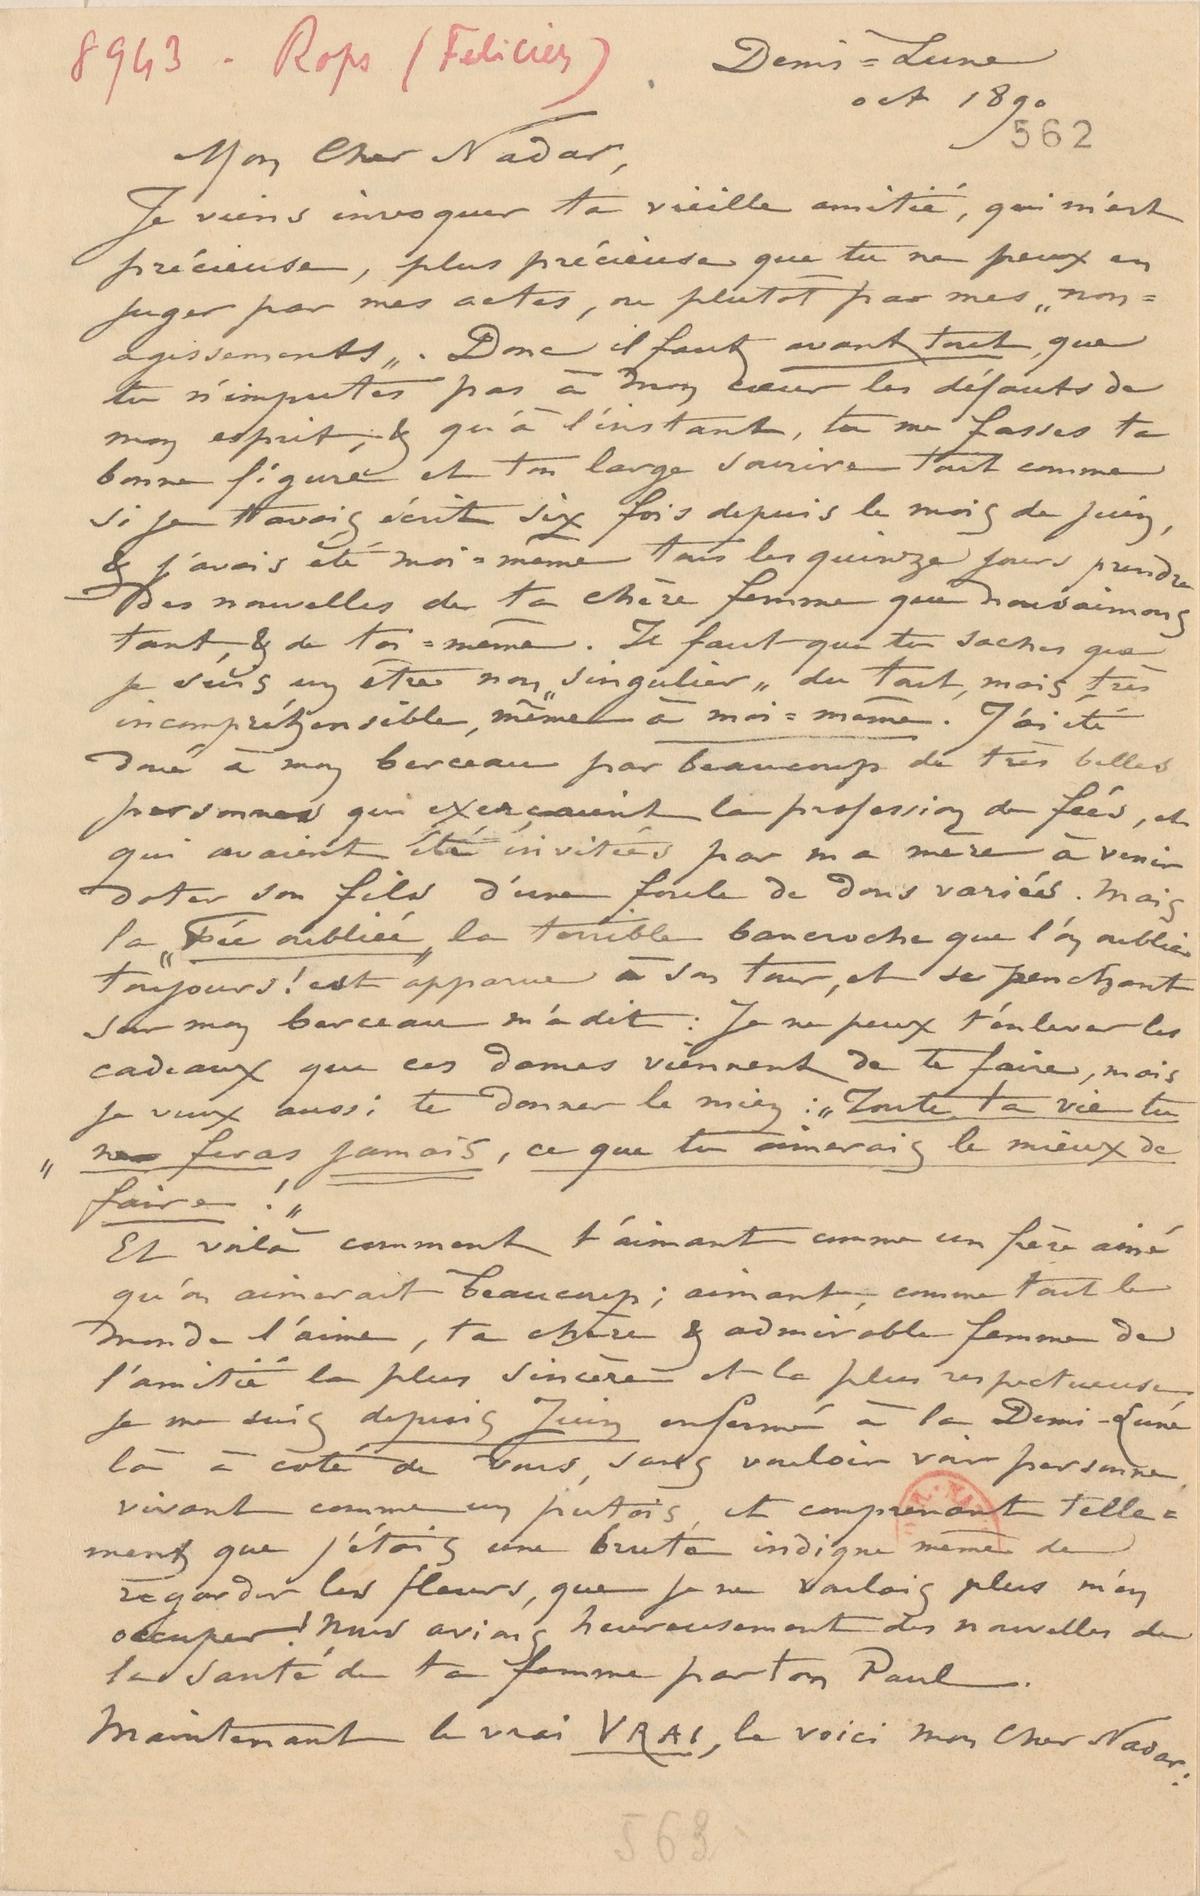 8943 - Rops (Felicien)
Demi=Lune
oct 1890
562
Mon Cher Nadar,
Je viens invoquer ta vieille amitié, qui m'est
précieuse, plus précieuse que tu ne peux en
juger par mes actes, ou plutôt par mes „non=
agissements„. Donc il faut, avant tout, que
tu n'imputes pas à mon cœur les défauts de
mon esprit, & qu'à l'instant, tu me fasses ta
bonne figure et ton large sourire tout comme
si je t'avais écrit six fois depuis le mois de juin,
& j'avais été moi=même tous les quinze jours prendre
des nouvelles de ta chère femme que nous aimons
tant, & de toi=même. Il faut que tu saches que
je suis un être non „singulier„ du tout, mais très
incompréhensible, même à moi=même. J'ai été
doué à mon berceau par beaucoup de très belles
personnes qui exerçaient la profession de fées, et
qui avaient été invitées par ma mère à venir
doter son fils d'une foule de dons variés. Mais
la „Fée oubliée„ la terrible bancroche que l'on oublie
toujours! est apparue à son tour, et se penchant
sur mon berceau m'a dit : Je ne peux t'enlever les
cadeaux que ces dames viennent de te faire, mais
je veux aussi te donner le mien : „Toute ta vie tu
„ ne feras jamais, ce que tu aimerais le mieux de
faire !„
Et voilà comment t'aimant comme un frère aîné
qu'on aimerait beaucoup ; aimant, comme tout le
monde l'aime, ta chère & admirable femme de
l'amitié la plus sincère et la plus respectueuse
je me suis depuis Juin enfermé à la Demi-Lune
là à côté de vous, sans vouloir voir personne,
vivant comme un putois, et comprenant telle=
ment que j'étais une brute indigne même de
regarder les fleurs, que je ne voulais plus m'en
occuper! Nous avions heureusement des nouvelles de
la santé de ta femme par ton Paul.
Maintenant le vrai VRAI, le voici mon Cher Nadar:
563